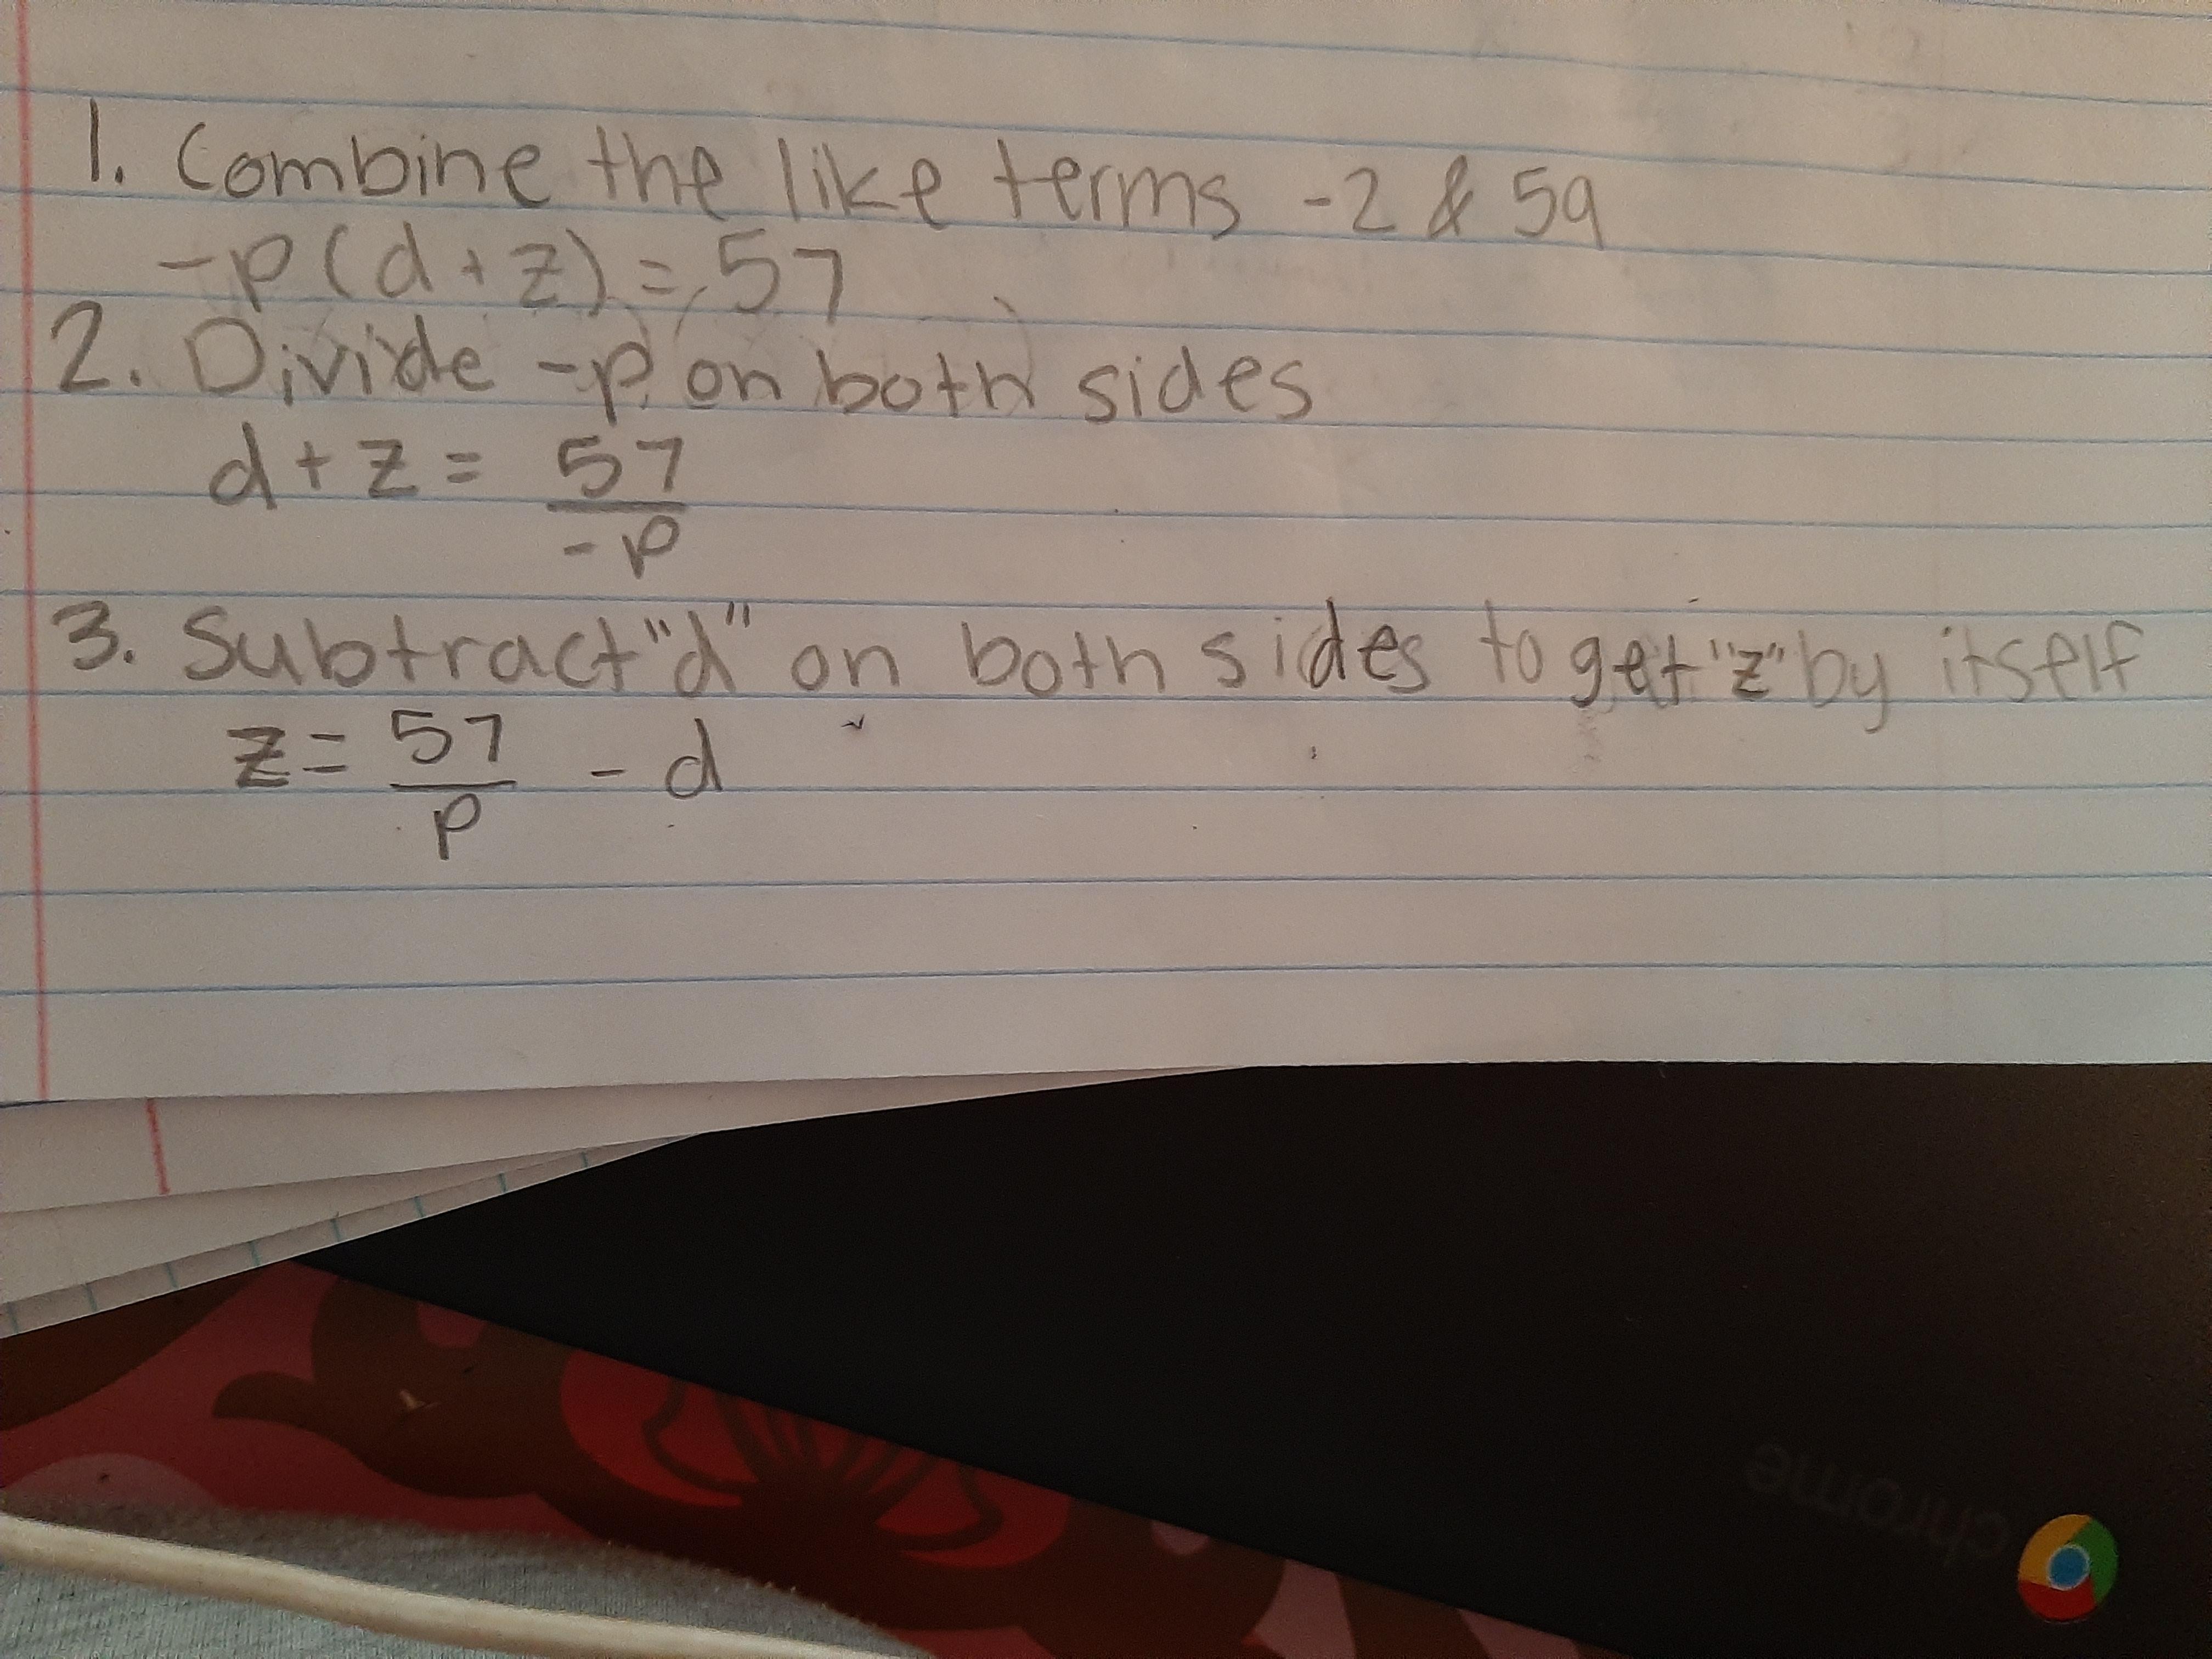 1. Combine the like terms -2 & 59
-p(d+z)=57
2. Divide -p on both sides
d+z= 57
-p
3. Subtract "d" on both sides to get "z" by itself
z= 57 - d
p
chrome